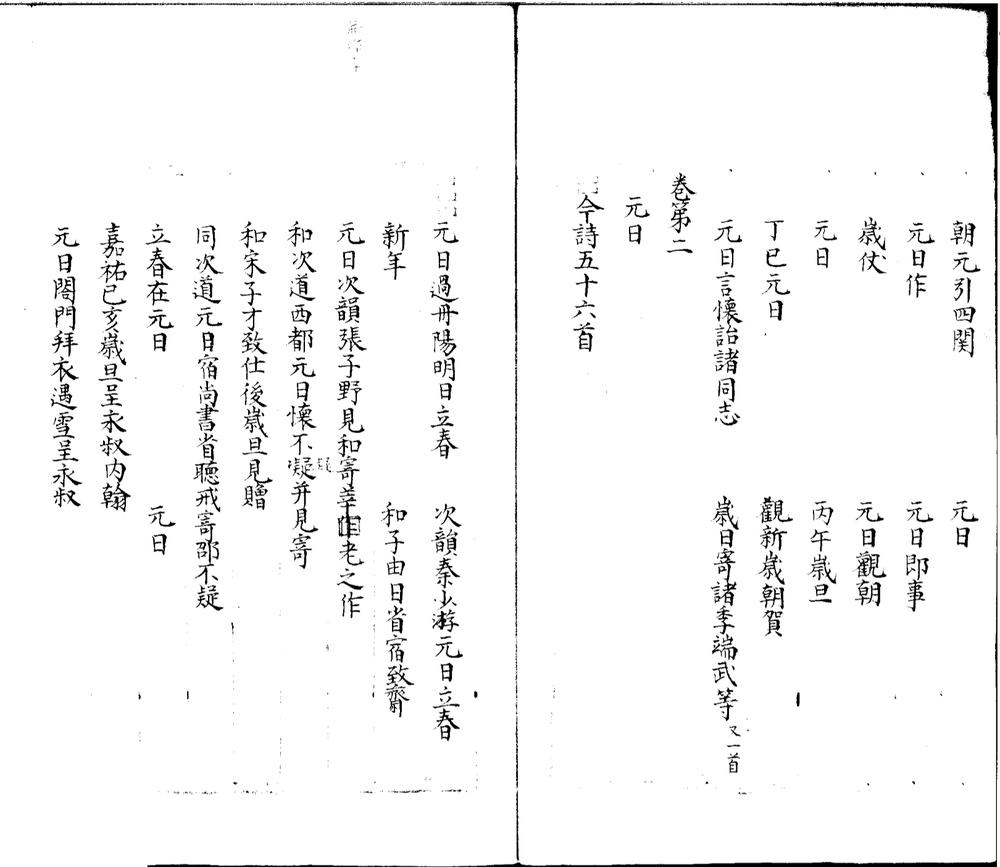 朝元引四関　元日
元日作　元日即事
歲仗　元日觀朝
元日　丙午歲旦
丁巳元日　觀新歲朝賀
元日言懷詒諸同志　歲日寄諸季端武等又一首
卷第二
元日
今詩五十六首
元日過丹陽明日立春　次韻秦少游元日立春
新年　和子由日省宿致齋
元日次韻張子野見和寄莘老之作
和次道西都元日懷不凝并見寄
疑
和宋子才致仕後歲旦見贈
同次道元日宿尚書省聽戒寄邵不疑
立春在元日　元日
嘉祐己亥歲旦呈永叔内翰
元日閤門拜衣遇雪呈永叔